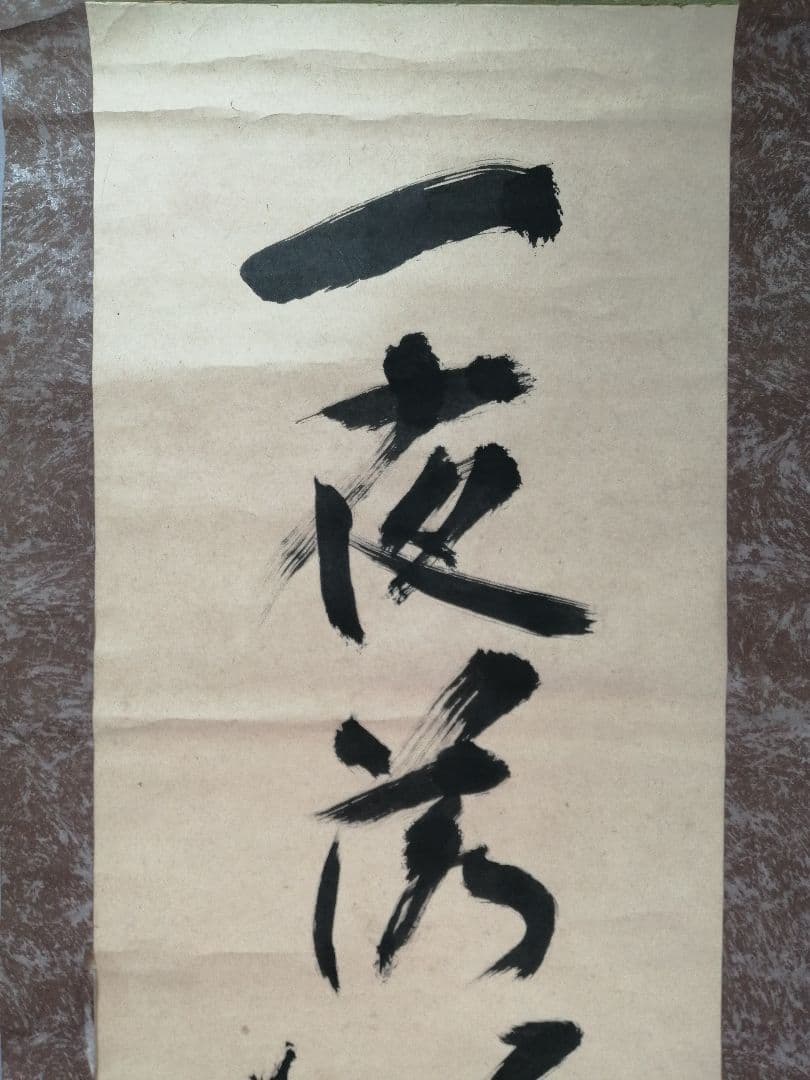 一夜落